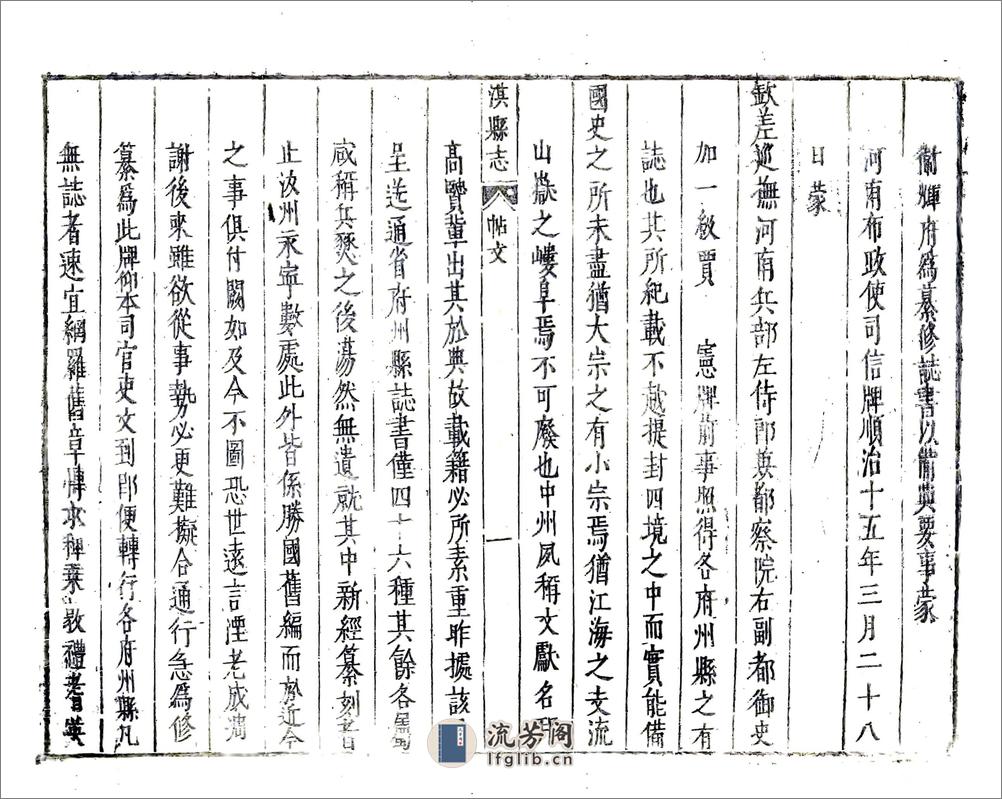 衛輝府為纂修誌書以備典要事蒙
河南布政使司信牌順治十五年三月二十八
日蒙
欽差巡撫河南兵部左侍郎兼都察院右副都御史
加一級賈 憲牌前事照得各府州縣之有
誌也其所紀載不越提封四境之中而實能備
國史之所未盡猶大宗之有小宗焉猶江海之支流
山嶽之嶁阜焉不可廢也中州夙稱文獻名
淇縣志 帖文 一
高賢輩出其於典故載籍必所素重昨據該
呈送通省府州縣誌書僅四十六種其餘各屬
咸稱兵燹之後蕩然無遺就其中新經纂刻者
止汝州永寧數處此外皆係勝國舊編而於近今
之事俱付闕如及今不圖恐世遠言湮老成凋
謝後來雖欲從事勢必更難擬合通行急為修
纂為此牌仰本司官吏文到即便轉行各府州縣凡
無誌者速宜網羅舊章博求稗乘敦禮耆英
流芳阁
lfglib.cn